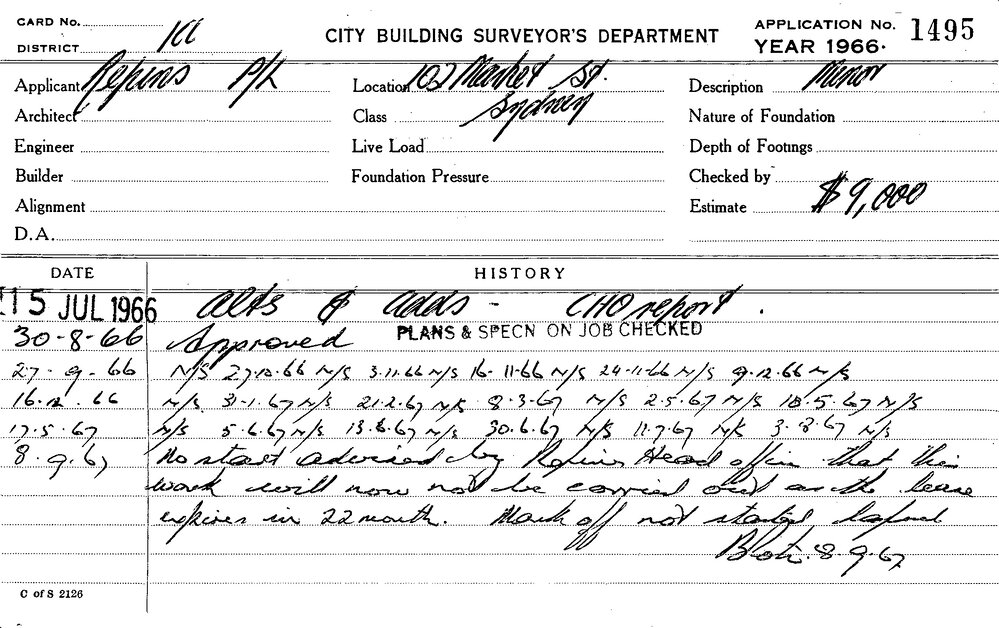 CARD No.
DISTRICT
CITY BUILDING SURVEYOR'S DEPARTMENT
APPLICATION No. 1495
YEAR 1966.
Applicant Repins P/L
Location 107 Market St.
Description Minor
Architect
Class Sydney
Nature of Foundation
Engineer
Live Load
Depth of Footings
Builder
Foundation Pressure
Checked by
Alignment
Estimate $9,000
D.A.
DATE
HISTORY
15 JUL 1966 Alts & adds - CHO report.
30-8-66 Approved PLANS & SPECN ON JOB CHECKED
27-9-66 N/S 27.10.66 N/S 3.11.66 N/S 16-11.66 N/S 24-11.66 N/S 9.12.66 N/S
16.12.66 N/S 31-1.67 N/S 21.2.67 N/S 8-3.67 N/S 2.5.67 N/S 10.5.67 N/S
17.5.67 N/S 5.6.67 N/S 13.6.67 N/S 30.6.67 N/S 11.7.67 N/S 3.8.67 N/S
8.9.67 No start advised by Repins Head office that this
work will now not be carried out as the lease
expires in 22 month. Mark off not started lapsed
8.9.67
C of S 2126